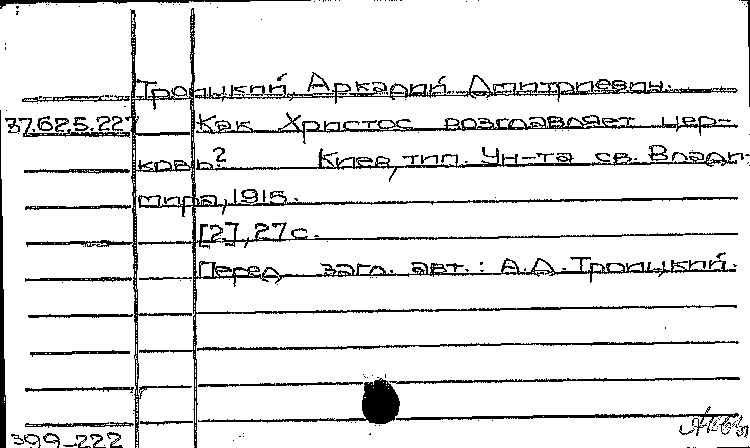 Троицкий, Аркадий Дмитриевич.
37.625.22 Как Христос возглавляет цер-
ковь? Киев, тип. Ун-та св. Влади
мира, 1915.
[2], 27 с.
Перед загл. авт.: А.Д. Троицкий.
399-222